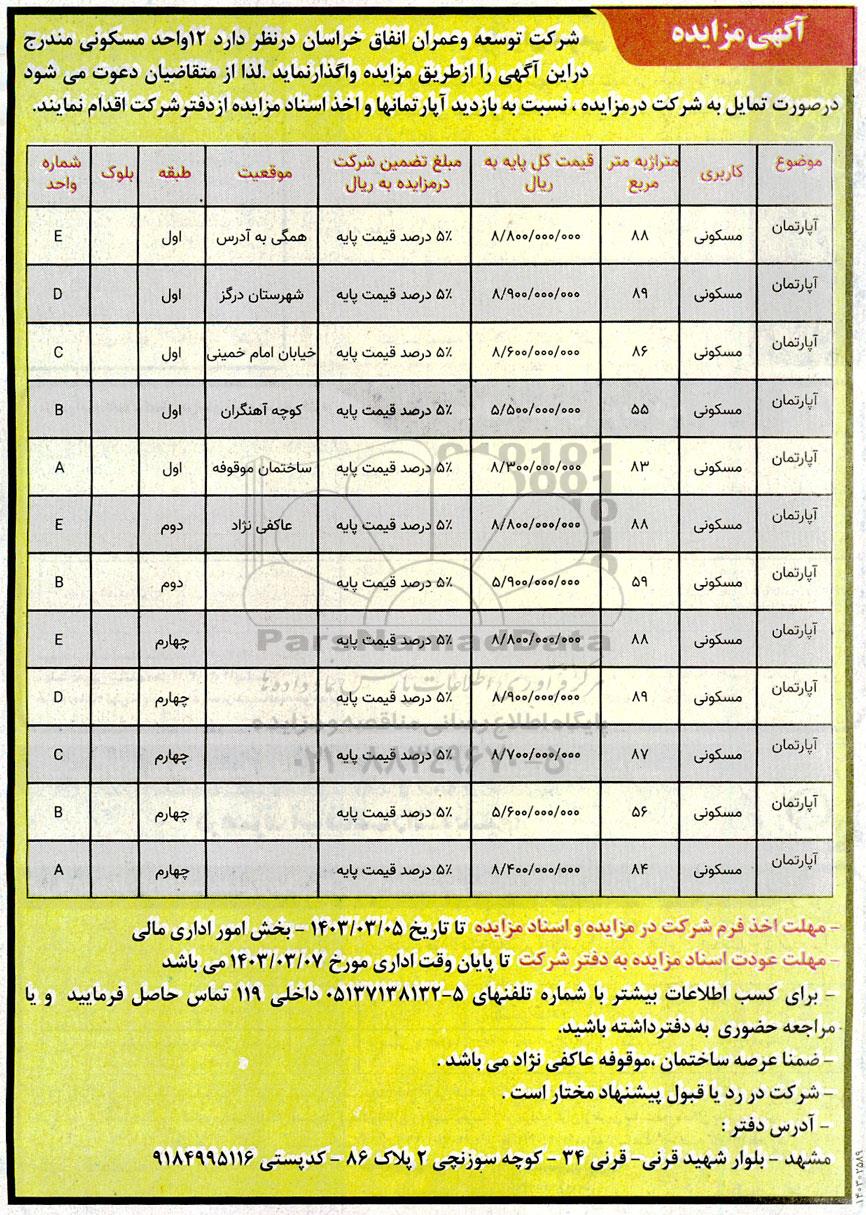 آگهی مزایده
شرکت توسعه وعمران انفاق خراسان درنظر دارد ۱۲واحد مسکونی مندرج
دراین آگهی را ازطریق مزایده واگذارنماید .لذا از متقاضیان دعوت می شود
درصورت تمایل به شرکت درمزایده ، نسبت به بازدید آپارتمانها و اخذ اسناد مزایده ازدفترشرکت اقدام نمایند.
موضوع کاربری متراژبه متر مربع قیمت کل پایه به ریال مبلغ تضمین شرکت درمزایده به ریال موقعیت طبقه بلوک شماره واحد
آپارتمان مسکونی ۸۸ ۸/۸۰۰/۰۰۰/۰۰۰ ۵٪ درصد قیمت پایه همگی به آدرس اول E
آپارتمان مسکونی ۸۹ ۸/۹۰۰/۰۰۰/۰۰۰ ۵٪ درصد قیمت پایه شهرستان درگز اول D
آپارتمان مسکونی ۸۶ ۸/۶۰۰/۰۰۰/۰۰۰ ۵٪ درصد قیمت پایه خیابان امام خمینی اول C
آپارتمان مسکونی ۵۵ ۵/۵۰۰/۰۰۰/۰۰۰ ۵٪ درصد قیمت پایه کوچه آهنگران اول B
آپارتمان مسکونی ۸۳ ۸/۳۰۰/۰۰۰/۰۰۰ ۵٪ درصد قیمت پایه ساختمان موقوفه اول A
آپارتمان مسکونی ۸۸ ۸/۸۰۰/۰۰۰/۰۰۰ ۵٪ درصد قیمت پایه عاکفی نژاد دوم E
آپارتمان مسکونی ۵۹ ۵/۹۰۰/۰۰۰/۰۰۰ ۵٪ درصد قیمت پایه دوم B
آپارتمان مسکونی ۸۸ ۸/۸۰۰/۰۰۰/۰۰۰ ۵٪ درصد قیمت پایه چهارم E
آپارتمان مسکونی ۸۹ ۸/۹۰۰/۰۰۰/۰۰۰ ۵٪ درصد قیمت پایه چهارم D
آپارتمان مسکونی ۸۷ ۸/۷۰۰/۰۰۰/۰۰۰ ۵٪ درصد قیمت پایه چهارم C
آپارتمان مسکونی ۵۶ ۵/۶۰۰/۰۰۰/۰۰۰ ۵٪ درصد قیمت پایه چهارم B
آپارتمان مسکونی ۸۴ ۸/۴۰۰/۰۰۰/۰۰۰ ۵٪ درصد قیمت پایه چهارم A
ParsNamadData
مرکز فرآوری اطلاعات پارس نماد داده ها
پایگاه اطلاع رسانی مناقصه و مزایده
۰۲۱-۸۸۳۴۹۶۷۰-۵
- مهلت اخذ فرم شرکت در مزایده و اسناد مزایده تا تاریخ ۱۴۰۳/۰۳/۰۵ - بخش امور اداری مالی
- مهلت عودت اسناد مزایده به دفتر شرکت تا پایان وقت اداری مورخ ۱۴۰۳/۰۳/۰۷ می باشد
- برای کسب اطلاعات بیشتر با شماره تلفنهای ۵-۰۵۱۳۷۱۳۸۱۳۲ داخلی ۱۱۹ تماس حاصل فرمایید و یا
مراجعه حضوری به دفترداشته باشید.
- ضمنا عرصه ساختمان ،موقوفه عاکفی نژاد می باشد .
- شرکت در رد یا قبول پیشنهاد مختار است .
- آدرس دفتر :
مشهد - بلوار شهید قرنی- قرنی ۳۴ - کوچه سوزنچی ۲ پلاک ۸۶ - کدپستی ۹۱۸۴۹۹۵۱۱۶
۱۴۰۳۰۲۵۸۹